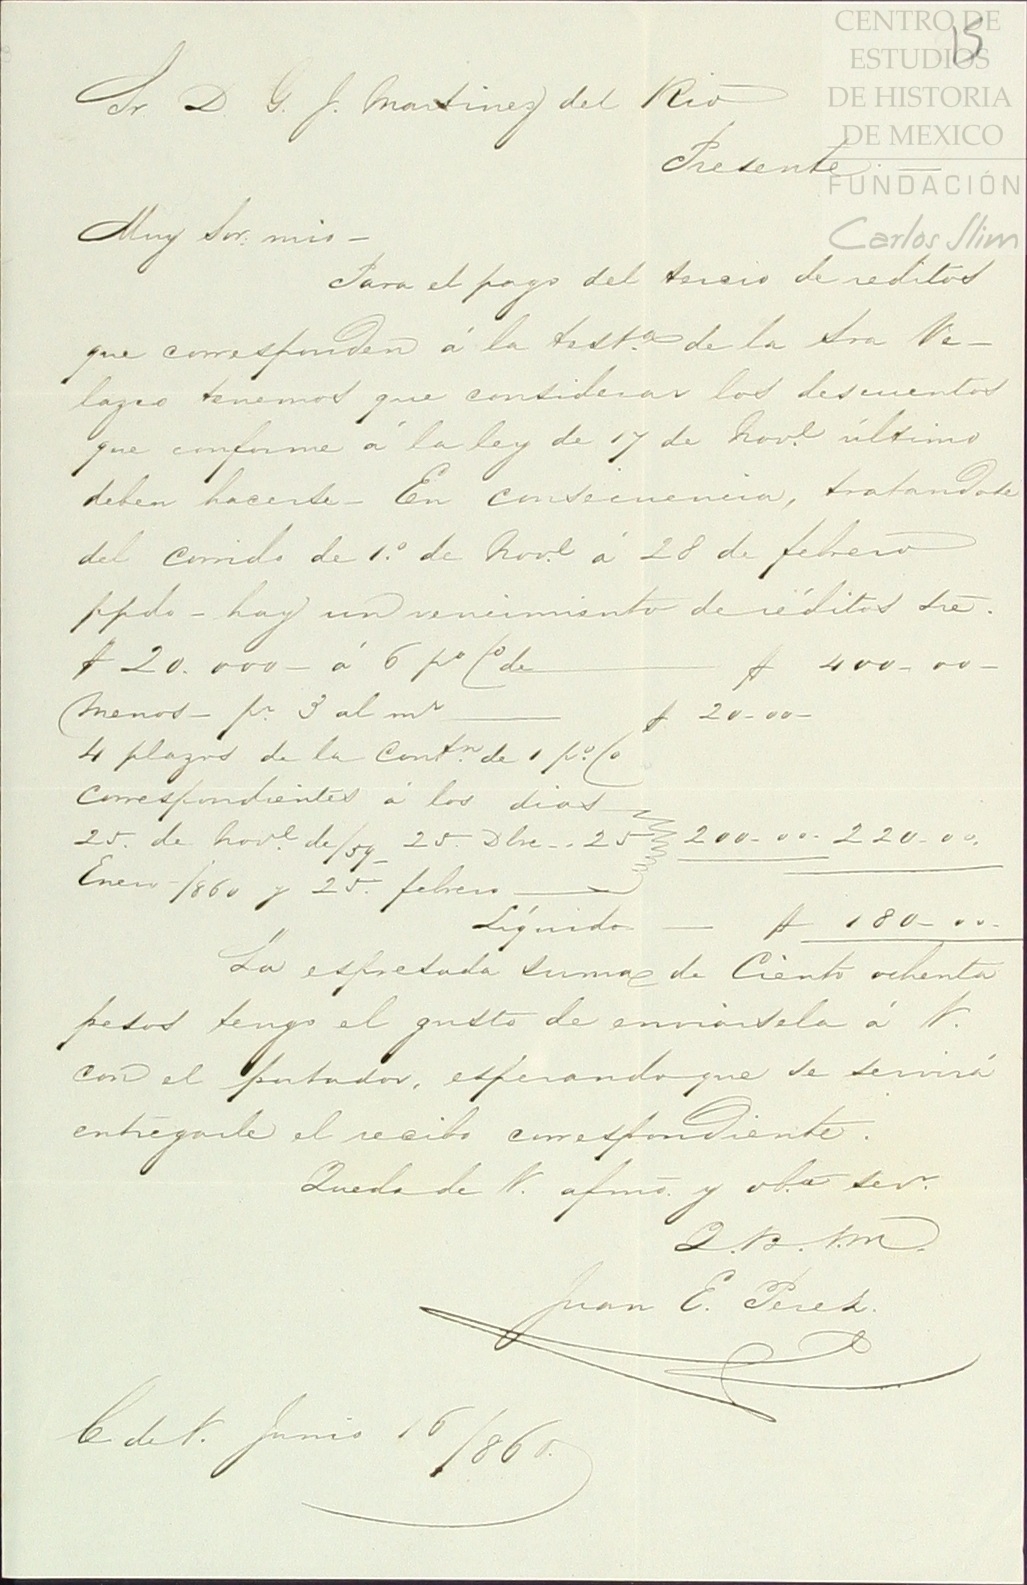 CENTRO DE
ESTUDIOS
DE HISTORIA
DE MEXICO
FUNDACIÓN
Carlos Slim
15
Sr D. G. J. Martinez del Rio
Presente.
Muy Sor. mio –
Para el pago del tercio de reditos
que corresponden á la testª de la Sra Ve-
lazco tenemos que considerar los descuentos
que conforme á la ley de 17 de Novᵉ último
deben hacerse – En consecuencia, tratandose
del corrido de 1.º de Novᵉ á 28 de febrero
ppdo – hay un vencimiento de réditos sre.
$ 20.000 – á 6 pº/º de $ 400-00-
Menos – pr 3 al mr $ 20-00-
4 plazos de la Contn. de 1 pº/º
correspondientes á los dias
25. de Novᵉ de/59– 25. Dbre.. 25 200-00- 220-00.
Enero /860 y 25. febrero
Líquido – $ 180-00-
La espresada suma de Ciento ochenta
pesos tengo el gusto de enviársela á V.
con el portador, esperando que se servirá
entregarle el recibo correspondiente.
Quedo de V. afmo. y obte serr.
Q. B. S. M.
Juan E. Perez.
C de V. Junio 16/860.